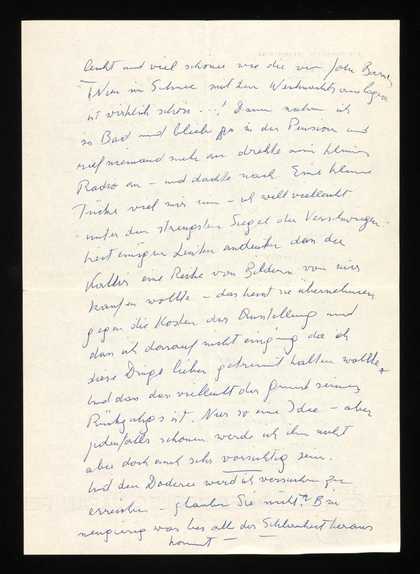 leicht und viel schöner wie die von John Barnes
(Nur im Schnee mit den Weihnachts
ist wirklich schön ...! Dann nahm ich
so Bad und blieb in der Pension und
rief niemand mehr an drehte mein kleines
Radio an – und dachte nach. Eine kleine
Tücke viel mir ein – ich will vielleicht
unter dem strengsten Siegel der Verschwiegen-
heit einigen Leuten andeuten dass der
eine Reihe von Bildern von mir
kaufen wollte – das heisst sie übernehmen
gegen die Kosten der Ausstellung und
dass ich darauf nicht einging da ich
diese Dinge lieber getrennt halten wollte
und dass das vielleicht der Grund seines
ist. Nur so eine Idee – aber
jedenfalls schonen werde ich ihn nicht
aber doch auch sehr vorsichtig sein.
Und den Doderer werd ich versuchen zu
erreichen – glauben Sie nicht? Bin
neugierig was bei all der Schlauheit heraus
kommt –